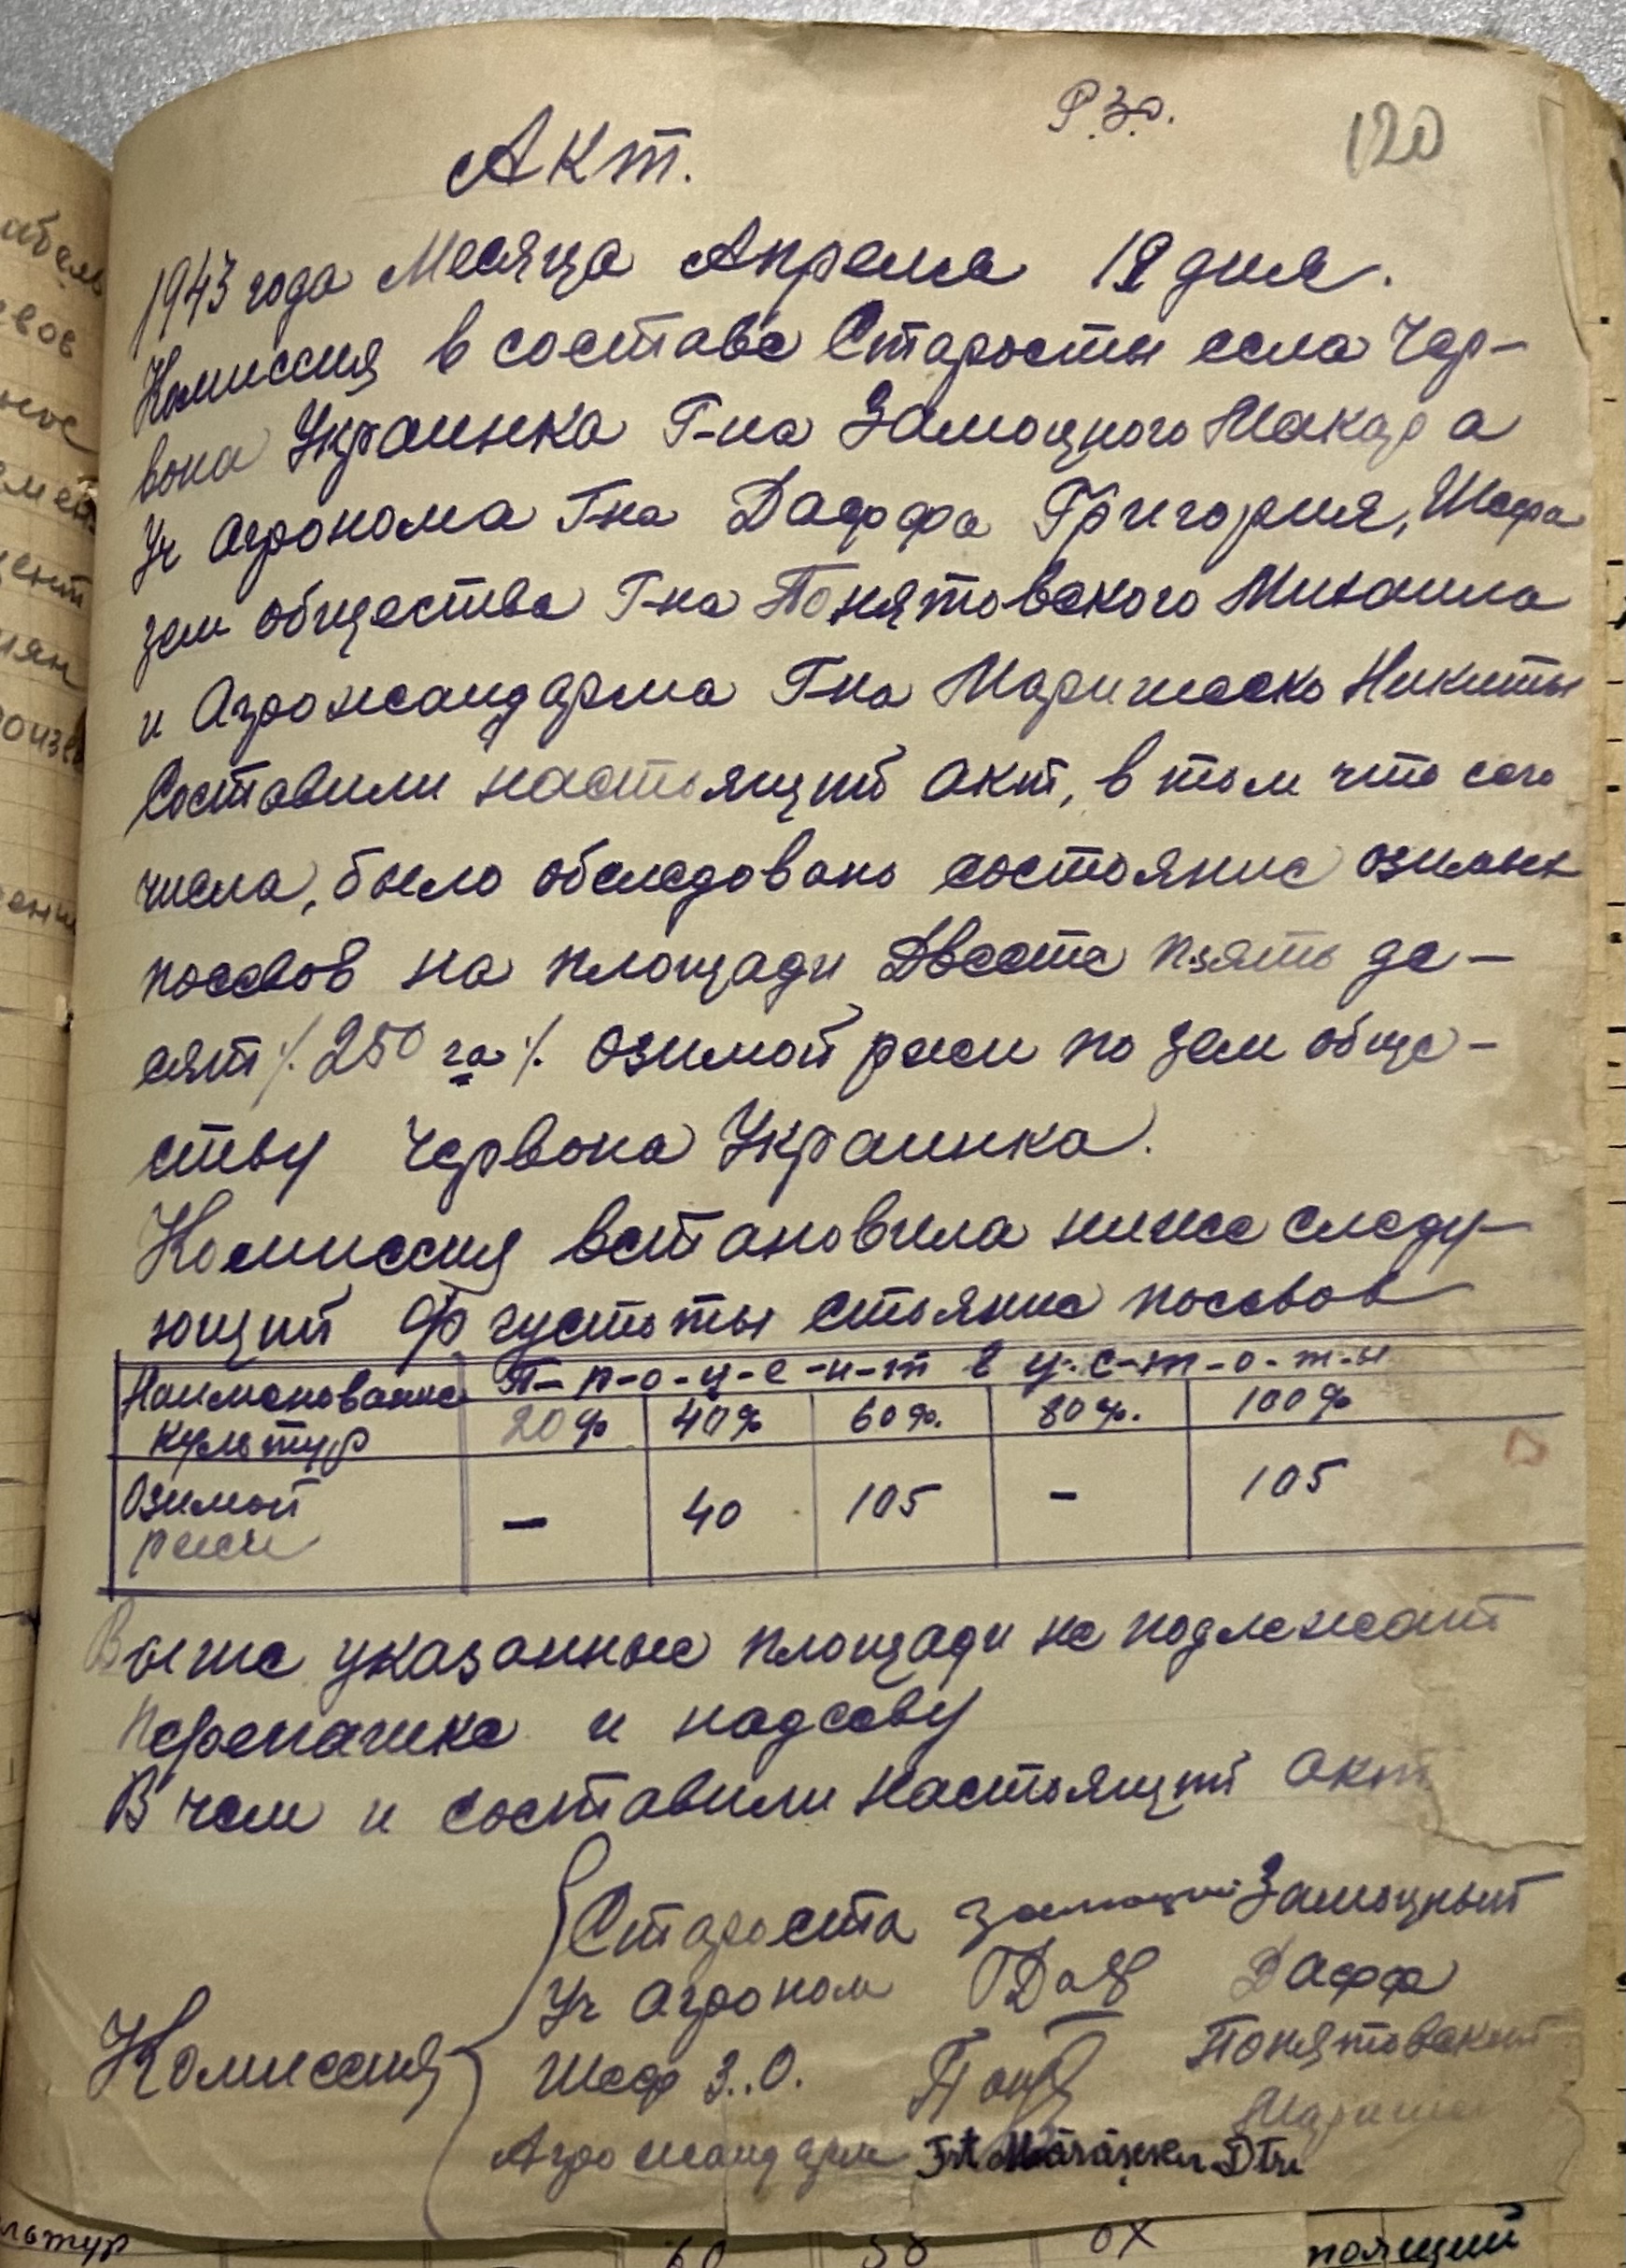 Р.З.О.
120
Акт.
1943 года Месяца Апреля 19 дня.
Комиссия в составе Старосты села Чер-
вона Украинка Г-на Замощного Макара
Уч Агронома Г-на Даффа Григория, Шефа
зем общества Г-на Понятовского Михаила
и Агрожандарма Г-на Маринеско Никиты
Составили настоящий акт, в том что сего
числа, было обследовано состояние озимых
посевов на площади Двести пять де-
сят ./. 250 га ./. озимой ржи по зем обще-
ству Червона Украинка.
Комиссия встановила ниже следу-
ющий % густоты стояние посевов
Наименование культур П-р-о-ц-е-н-т г у-с-т-о-т-ы
20% 40% 60%. 80%. 100%
Озимой ржи — 40 105 — 105
Выше указанные площади не подлежат
перепашке и надсеву
В чем и составили настоящий акт
Староста Замощный
Уч Агроном Дафф
Комиссия Шеф З.О. Понятовский
Агрожандарм